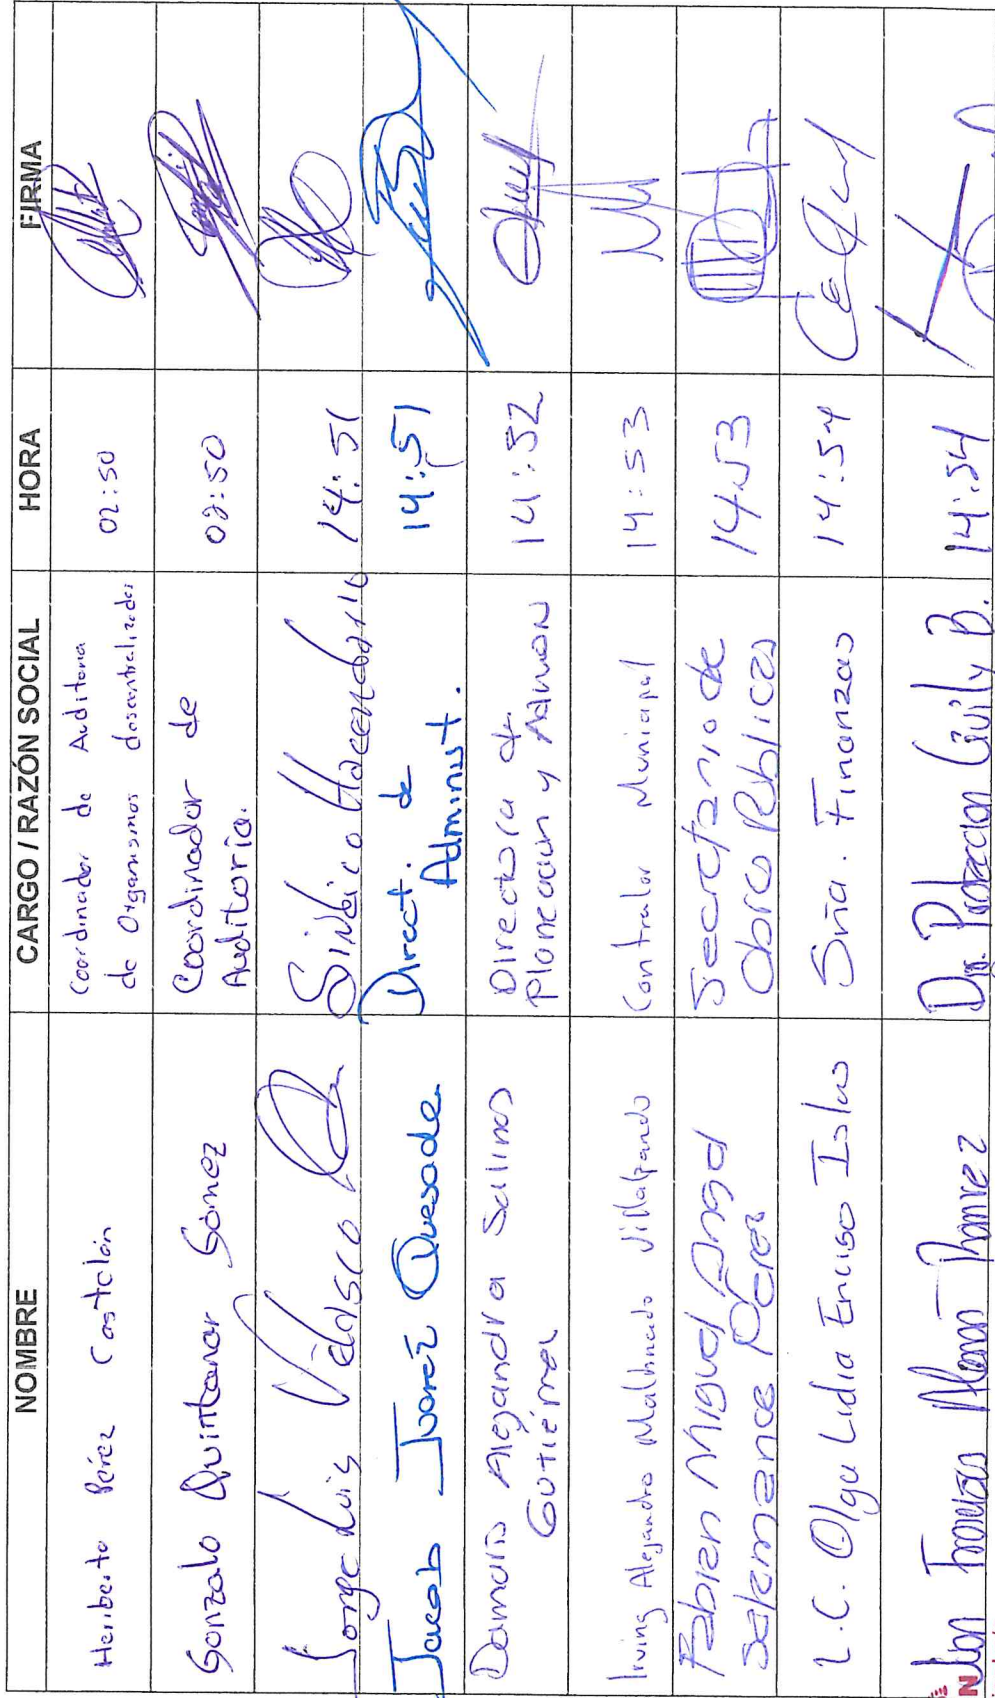 NOMBRE CARGO / RAZÓN SOCIAL HORA FIRMA
Heriberto Pérez Castelán
Coordinador de Auditoria
de Organismos descentralizados
02:50
Gonzalo Quintanar Gómez
Coordinador de
Auditoría.
02:50
Jorge Luis Velasco
Síndico Hacendario
14:51
Jacob Juarez Quesada
Direct. de
Administ.
14:51
Damaris Alejandra Salinas
Gutiérrez
Directora de
Planeación y Admon
14:52
Irving Alejandro Maldonado Villalpando
Contralor Municipal
14:53
Fabian Miguel Angel
Salamanca Pérez
Secretario de
Obras Publicas
14:53
L.C. Olga Lidia Enciso Islas
Sria. Finanzas
14:54
Aleman Ramirez
Dir. Proteccion Civil y B.
14:54